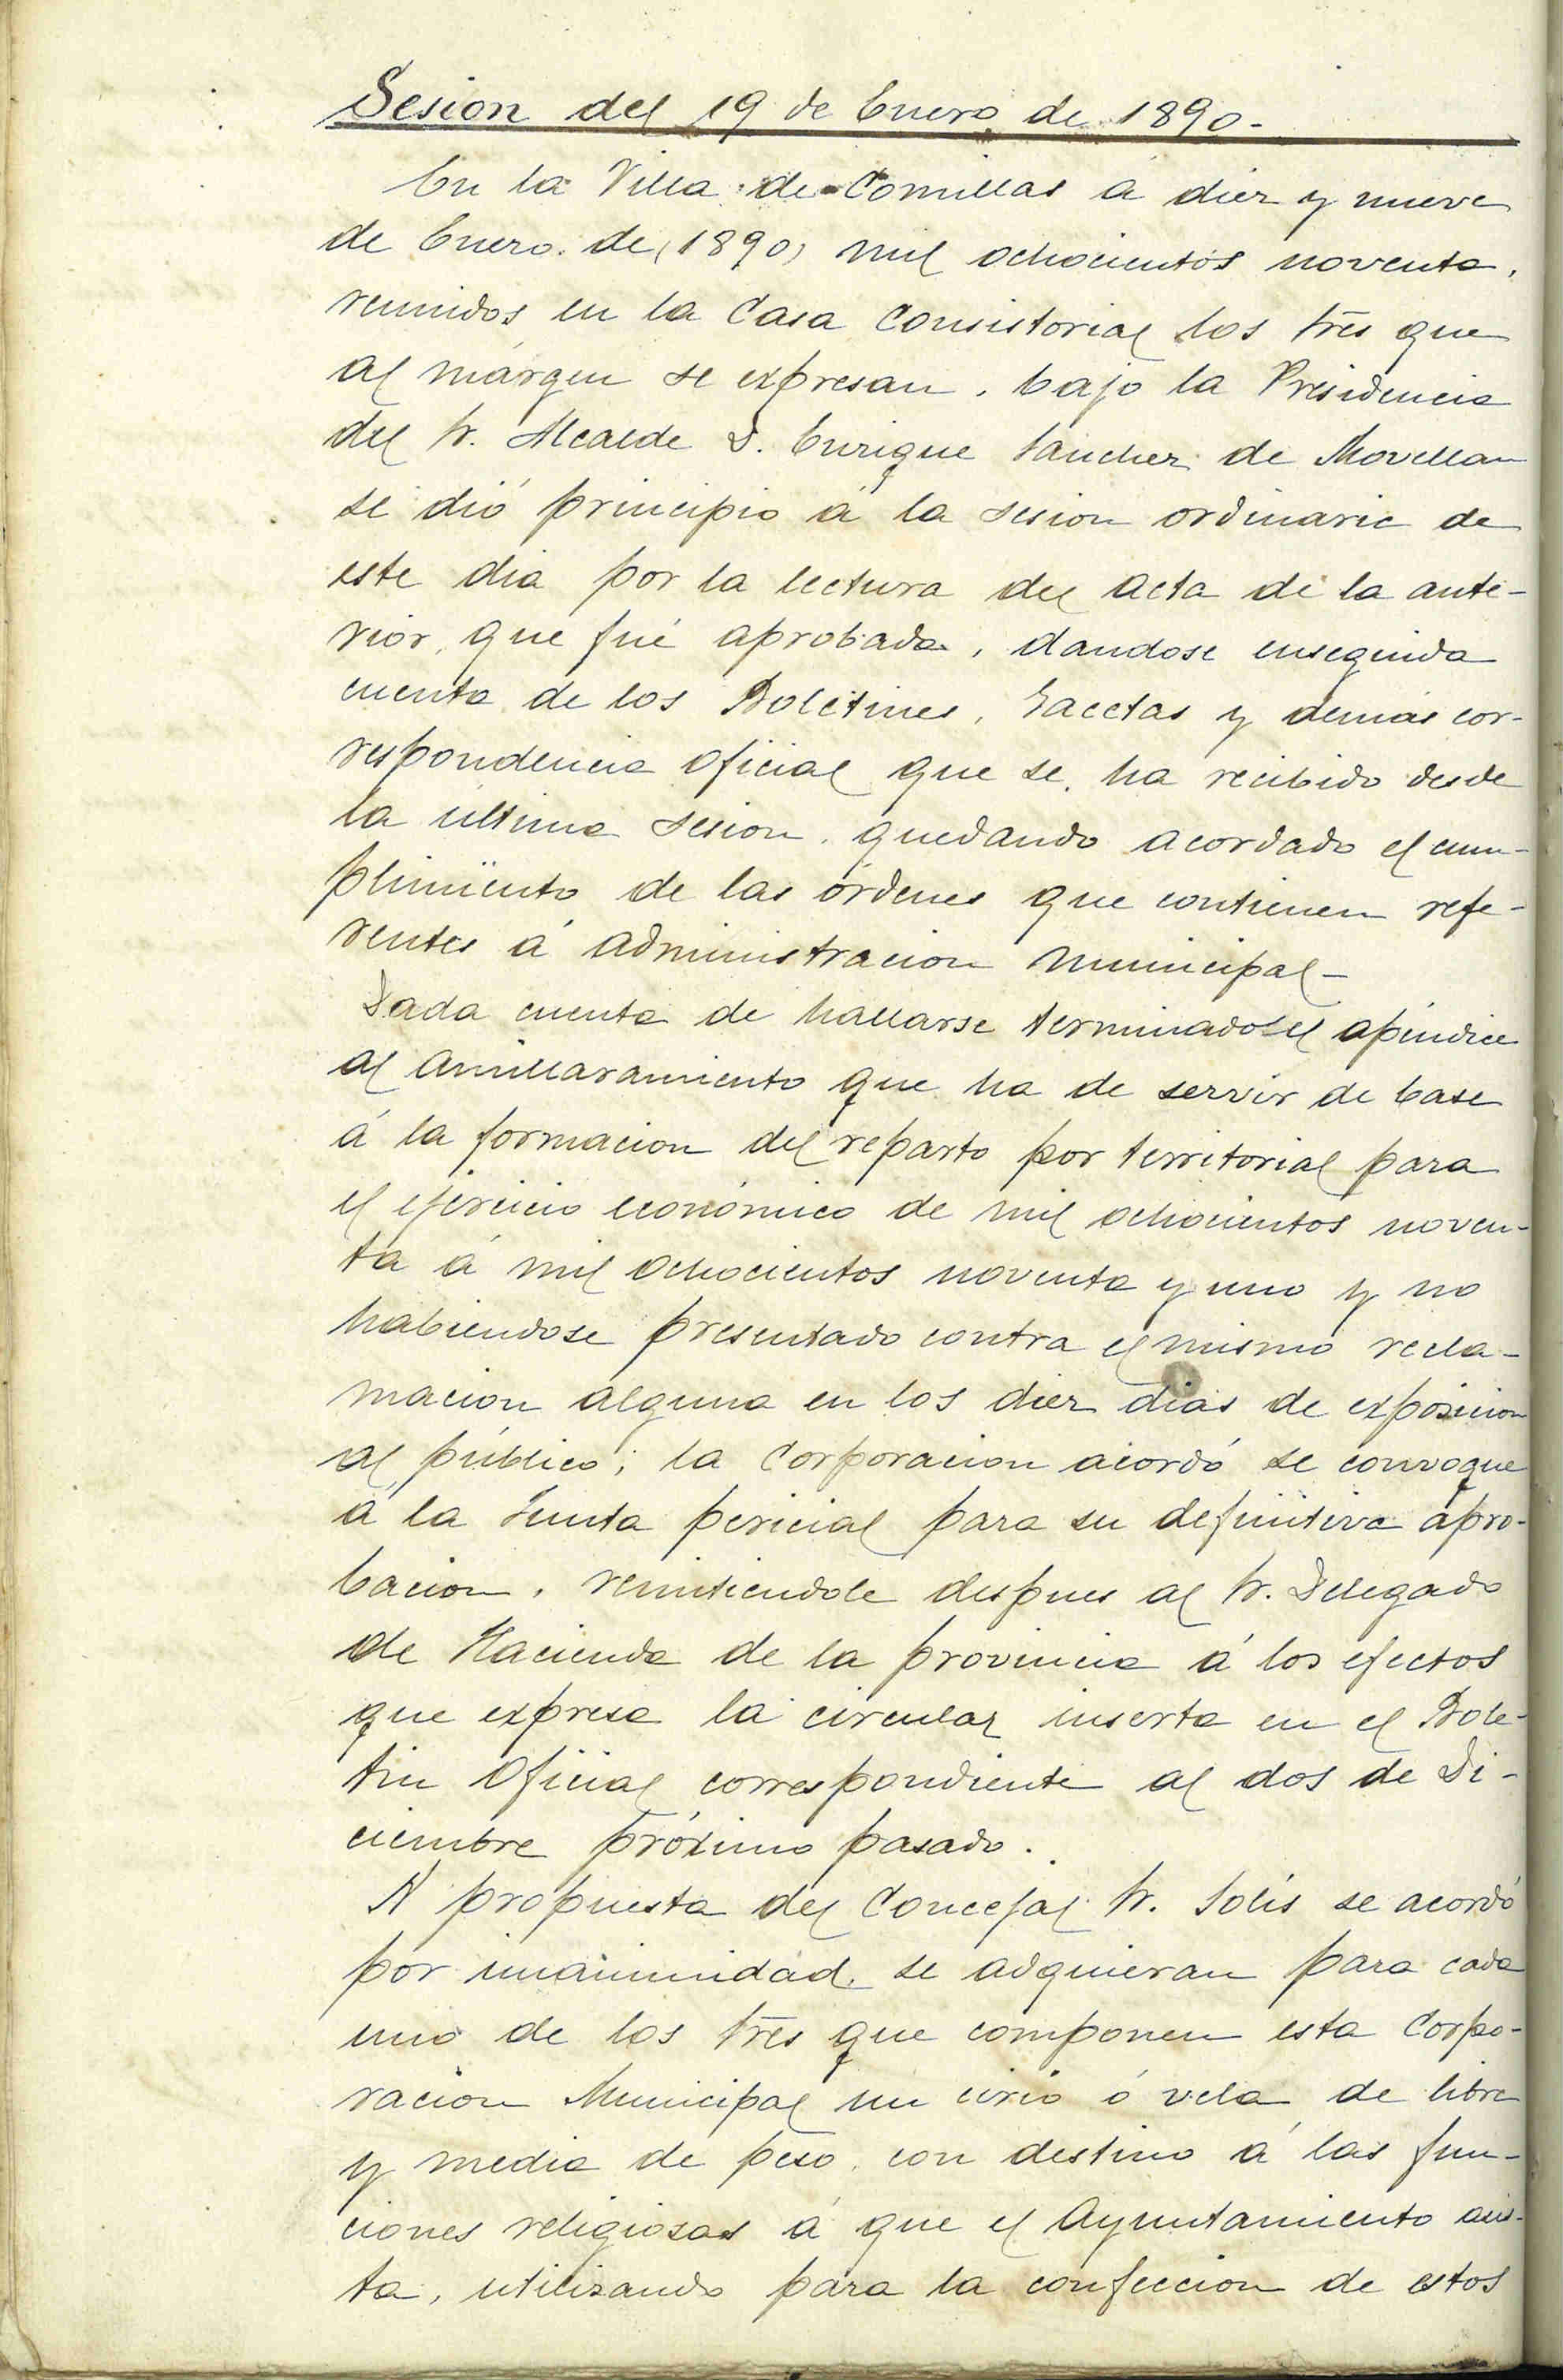 Sesion del 19 de Enero de 1890-
En la Villa de Comillas á diez y nueve
de Enero de (1890) mil ochocientos noventa,
reunidos en la Casa Consistorial los Sres que
al márgen se expresan, bajo la Presidencia
del Sr. Alcalde D. Enrique Sanchez de Movellan
se dió principio á la sesion ordinaria de
este dia por la lectura del acta de la ante-
rior, que fué aprobada, dandose enseguida
cuenta de los Boletines, Gacetas y demás cor-
respondencia oficial que se ha recibido desde
la última sesion, quedando acordado el cum-
plimiento de las órdenes que contienen refe-
rentes á administracion municipal-
Dada cuenta de hallarse terminado el apéndice
al amillaramiento que ha de servir de base
á la formacion del reparto por territorial para
el ejercicio económico de mil ochocientos noven-
ta á mil ochocientos noventa y uno y no
habiendose presentado contra el mismo recla-
macion alguna en los diez dias de exposicion
al público; la Corporacion acordó se convoque
á la Junta pericial para su definitiva apro-
bacion, remitiendole despues al Sr. Delegado
de Hacienda de la provincia á los efectos
que expresa la circular inserta en el Bole-
tin oficial correspondiente al dos de Di-
ciembre próximo pasado.
A propuesta del Concejal Sr. Solís se acordó
por unanimidad, se adquieran para cada
uno de los Sres que componen esta Corpo-
racion Municipal un cirio ó vela de libra
y media de peso, con destino á las fun-
ciones religiosas á que el Ayuntamiento asis-
ta, utilizando para la confeccion de estos